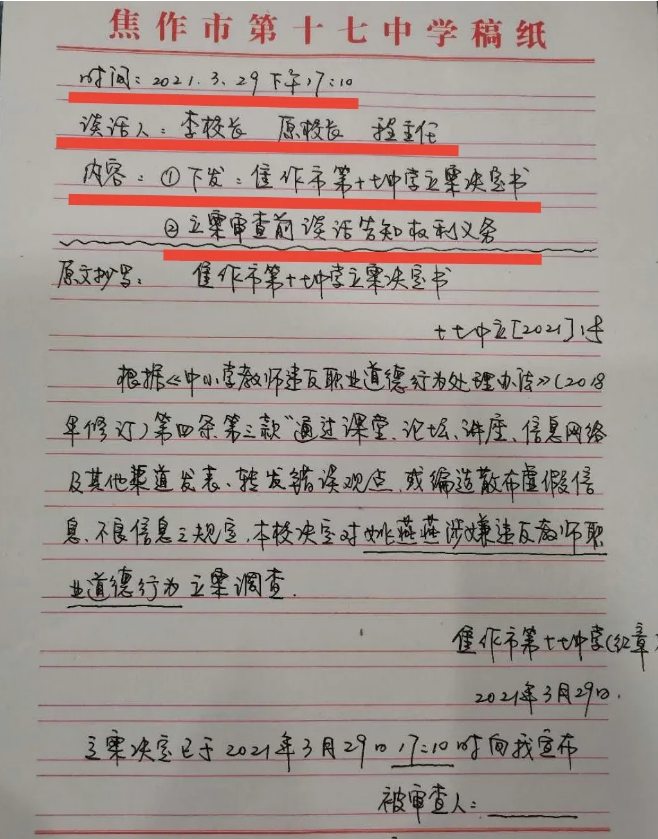 焦作市第十七中学稿纸
时间：2021.3.29下午17:10
谈话人：李校长 原校长 程主任
内容：①下发：焦作市第十七中学立案决定书
②立案审查前谈话告知权利义务
原文抄写： 焦作市第十七中学立案决定书
十七中立[2021]1号
根据《中小学教师违反职业道德行为处理办法》(2018
年修订)第四条第三款"通过课堂、论坛、讲座、信息网络
及其他渠道发表、转发错误观点,或编造散布虚假信
息、不良信息之规定,本校决定对姚燕燕涉嫌违反教师职
业道德行为立案调查.
焦作市第十七中学(红章)
2021年3月29日.
立案决定已于2021年3月29日17:10时向我宣布
被审查人：